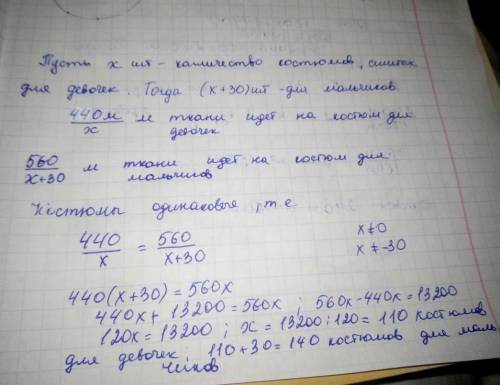 Пусть x шт - количество костюмов, сшитых
для девочек. Тогда (x+30) шт - для мальчиков
440м/x м ткани идет на костюм для девочек
560/x+30 м ткани идет на костюм для мальчиков
Костюмы одинаковые, т.е
440/x = 560/x+30 x≠0
x≠-30
440(x+30) = 560x
440x + 13200 = 560x ; 560x - 440x = 13200
120x = 13200 ; x = 13200 : 120 = 110 костюмов
для девочек ; 110 + 30 = 140 костюмов для маль
чиков